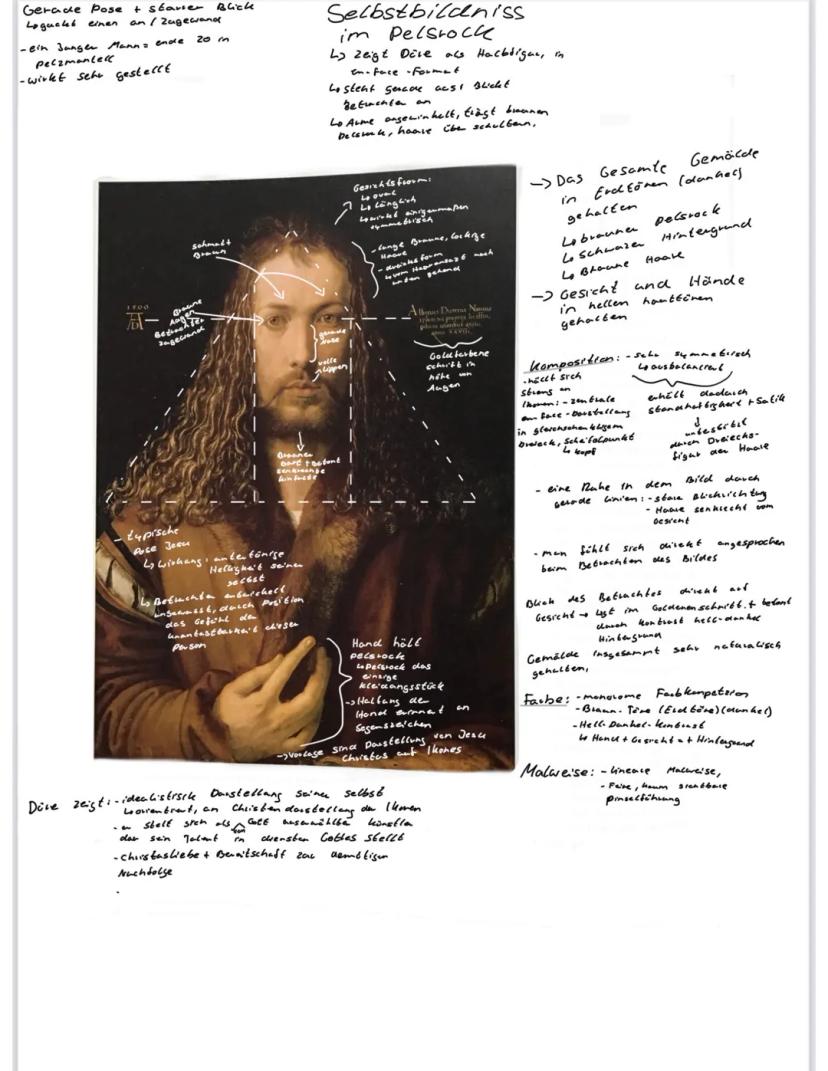 Gerade Pose + starrer Blick
↳ guckt einen an / zugewand
- ein Junger Mann = ende 20 in
pelzmantell
- wirkt sehr gestellt
Selbstbildniss
im Pelsrock
↳ zeigt Düre als Halbfigur, in
en-face-Format
↳ steht gerade aus / Blickt
Betrachter an
↳ Arme angewinkelt, trägt braunen
Pelsrock, haare über schultern,
→ Das Gesamte Gemälde
in Erdtönen (dunkel)
gehalten
↳ brauner Pelsrock
↳ Schwarzer Hintergrund
↳ Braune Haare
→ Gesicht und Hände
in hellen hauttönen
gehalten
Gesichtsform:
↳ oval
↳ länglich
↳ wirkt einigermaßen
symmetrisch
- lange Braune, lockige
Haare
- dreiecksform
↳ vom Haaransatz nach
unten gehend
schmale
Braun
1500
AD
Braune
Augen
Betrachter
zugewand
gerade
Nase
volle
Lippen
Goldfarbene
schrift in
höhe von
Augen
Brauner
Bart + betont
senkrechte
- typische
Pose Jesu
↳ Wirkung: unterlegung
Helligkeit seiner
selbst
↳ Betrachter entwickelt
unbewusst, durch Position
das Gefühl der
unantastbarkeit dieser
Person
Hand hält
Pelsrock
↳ Pelsrock das
einzige
kleidungsstück
→ Haltung der
Hand erinnert an
Segenszeichen
→ Vorlage sind Darstellung von Jesu
Christus auf Ikones
Komposition: - sehr symmetrisch
↳ ausbalanciert
- hällt sich
streng an
Ikonen: - zentrale
en face-Darstellung
in gleichschenkligem
Dreieck, Scheitelpunkt
↳ kopf
erhält dadurch
standhaftigkeit + Satik
↓
unterstützt
durch Dreiecks-
figur der Haare
- eine Ruhe in dem Bild durch
gerade Linien: - stare Blickrichtug
- Haare senkrecht vom
Gesicht
- man fühlt sich direkt angesprochen
beim Betrachten des Bildes
Blick des Betrachtes direkt auf
Gesicht → Ligt im Goldenenschnitt. + betont
durch kontrast hell-dunkel
Hintergrund
Gemälde insgesammt sehr naturalisch
gehalten,
Farbe: - monorome Farbkompetion
- Braun-Töne (Erdtöne) (dunkel)
- Hell-Dunkel-Kontrast
↳ Hand + Gesicht ↔ Hintergrund
Malweise: - lineare Malweise,
- Feine, kaum sichtbare
pinselführung
Düre zeigt: - idealistrisch Darstellung seiner selbst
↳ orientirert, an Christendarstellung der Ikonen
- er stellt sich als von Gott auserwählte künstler
der sein Talent in diensten Gottes stellt
- Christusliebe + Bereitschaft zur demütigen
Nachfolge